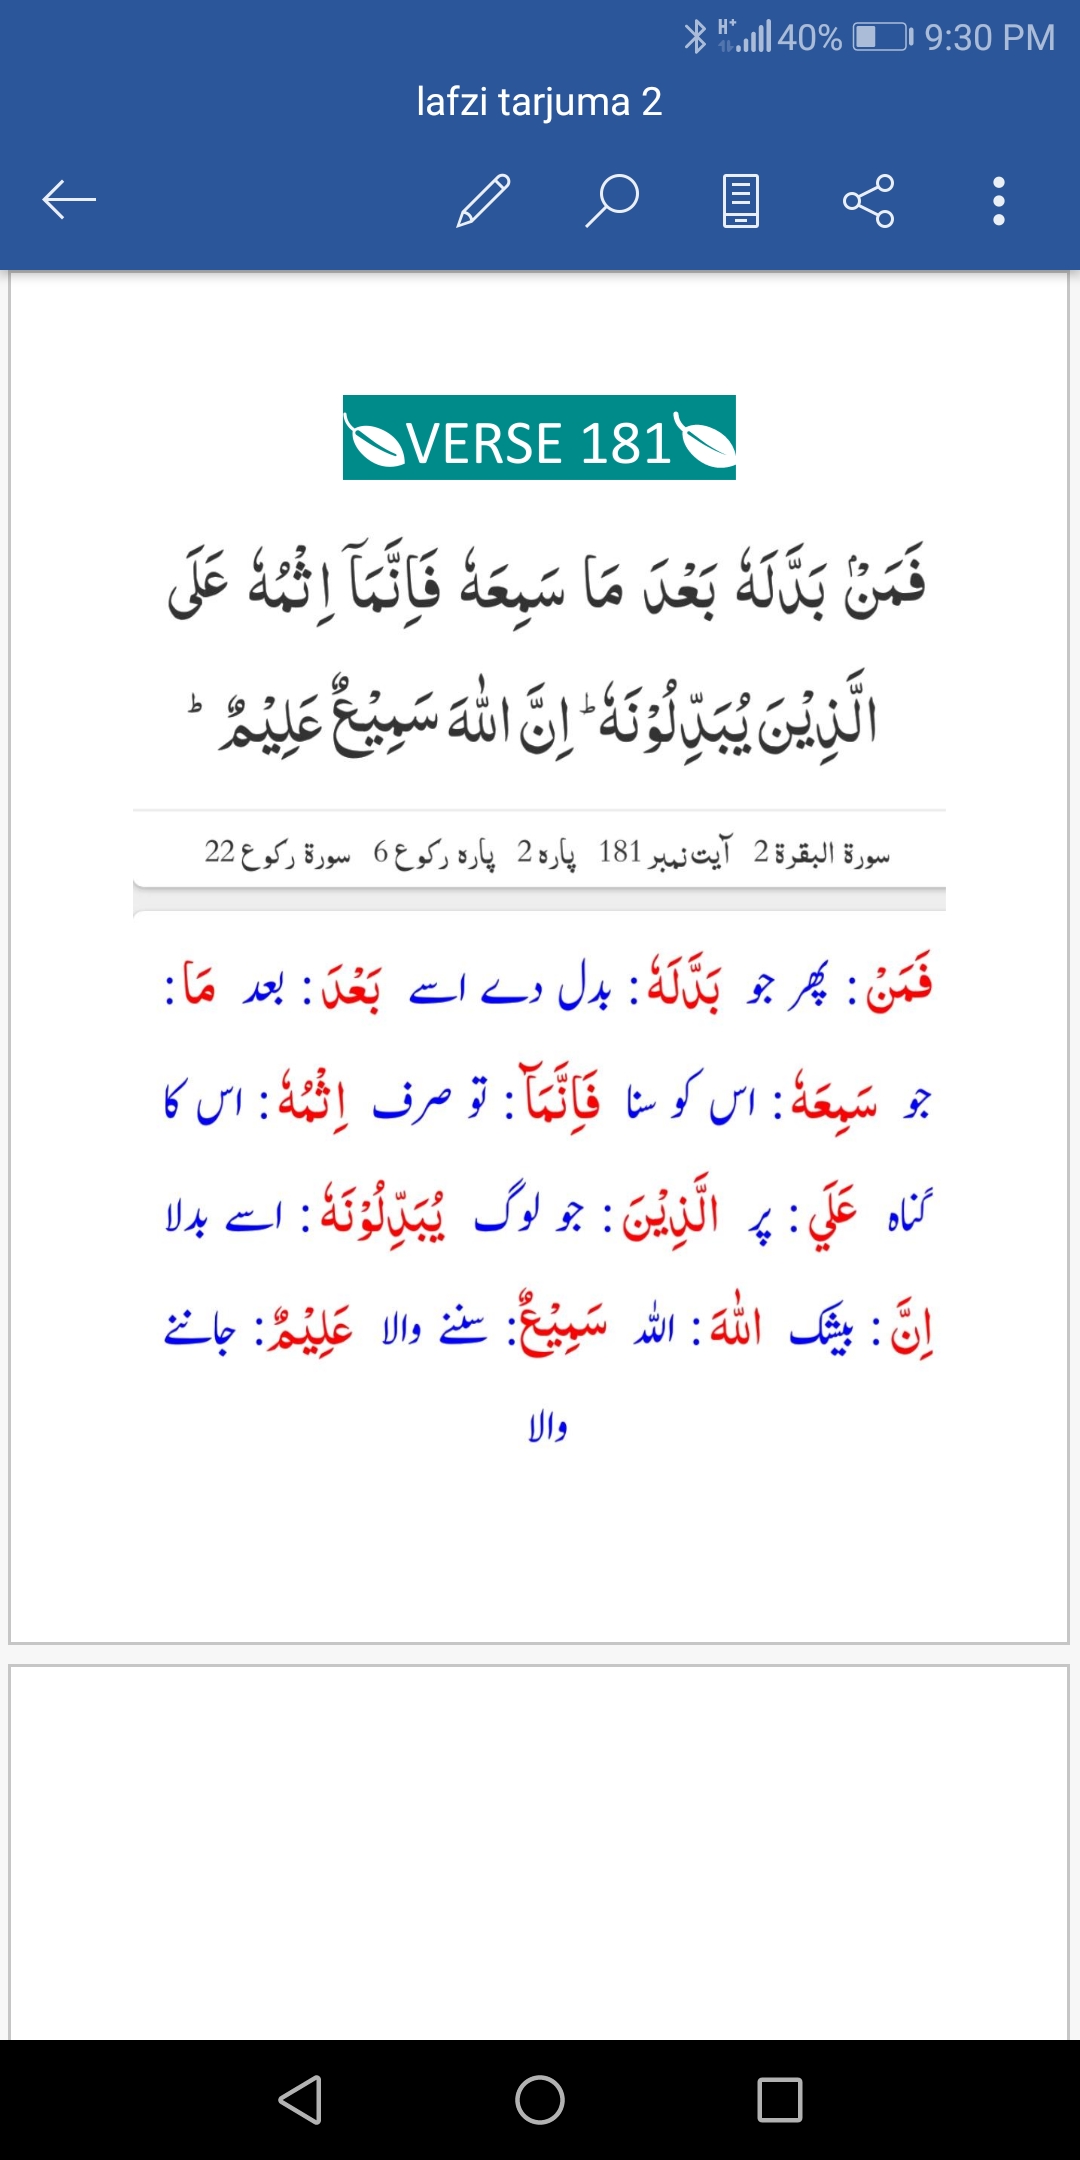 H+ 40% 9:30 PM
lafzi tarjuma 2
VERSE 181
فَمَنْۢ بَدَّلَهٗ بَعْدَ مَا سَمِعَهٗ فَاِنَّمَاۤ اِثْمُهٗ عَلَى
الَّذِيْنَ يُبَدِّلُوْنَهٗ ؕ اِنَّ اللّٰهَ سَمِيْعٌ عَلِيْمٌ ؕ
سورۃ البقرۃ 2 آیت نمبر 181 پارہ 2 پارہ رکوع 6 سورۃ رکوع 22
فَمَنْ : پھر جو بَدَّلَهٗ : بدل دے اسے بَعْدَ : بعد مَا :
جو سَمِعَهٗ : اس کو سنا فَاِنَّمَآ : تو صرف اِثْمُهٗ : اس کا
گناہ عَلَي : پر الَّذِيْنَ : جو لوگ يُبَدِّلُوْنَهٗ : اسے بدلا
اِنَّ : بیشک اللّٰهَ : اللہ سَمِيْعٌ : سننے والا عَلِيْمٌ : جاننے
والا